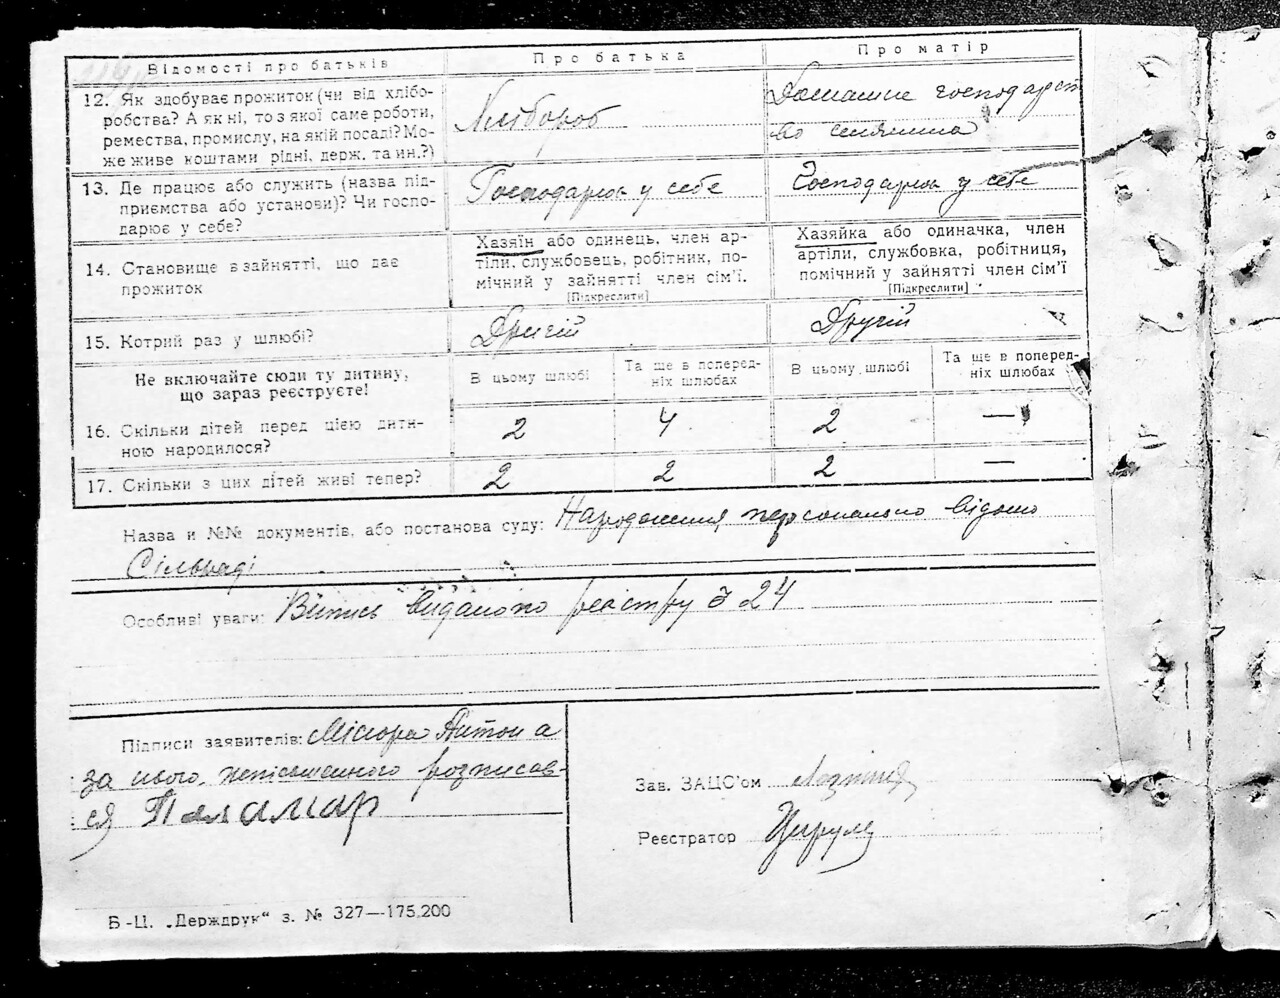 Відомості про батьків
Про батька
Про матір
12. Як здобуває прожиток (чи від хлібо-
робства? А як ні, то з якої саме роботи,
ремества, промислу, на якій посаді? Мо-
же живе коштами рідні, держ. та ин.?)
Хлібороб
Домашнє господарст
во селянина
13. Де працює або служить (назва під-
приємства або установи)? Чи госпо-
дарює у себе?
Господарює у себе
Господарює у себе
14. Становище в занятті, що дає
прожиток
Хазяїн або одинець, член ар-
тіли, службовець, робітник, по-
мічний у зайнятті член сім'ї.
[Підкреслити]
Хазяйка або одиначка, член
артіли, службовка, робітниця,
помічний у зайнятті член сім'ї
[Підкреслити]
15. Котрий раз у шлюбі?
Другій
Другій
Не включайте сюди ту дитину,
що зараз реєструєте!
В цьому шлюбі
Та ще в поперед-
ніх шлюбах
В цьому шлюбі
Та ще в поперед-
ніх шлюбах
16. Скільки дітей перед цією дити-
ною народилося?
2
4
2
—
17. Скільки з цих дітей живі тепер?
2
2
2
—
Назва и №№ документів, або постанова суду: Народження персонально відомо
Сільраді
Особливі уваги: Випис видано по реєстру 24
Підписи заявителів: Антона
за нього неписьменного розписав-
ся Паламар
Зав. ЗАЦС'ом
Реєстратор
Б-Ц. „Держдрук“ з. № 327—175.200